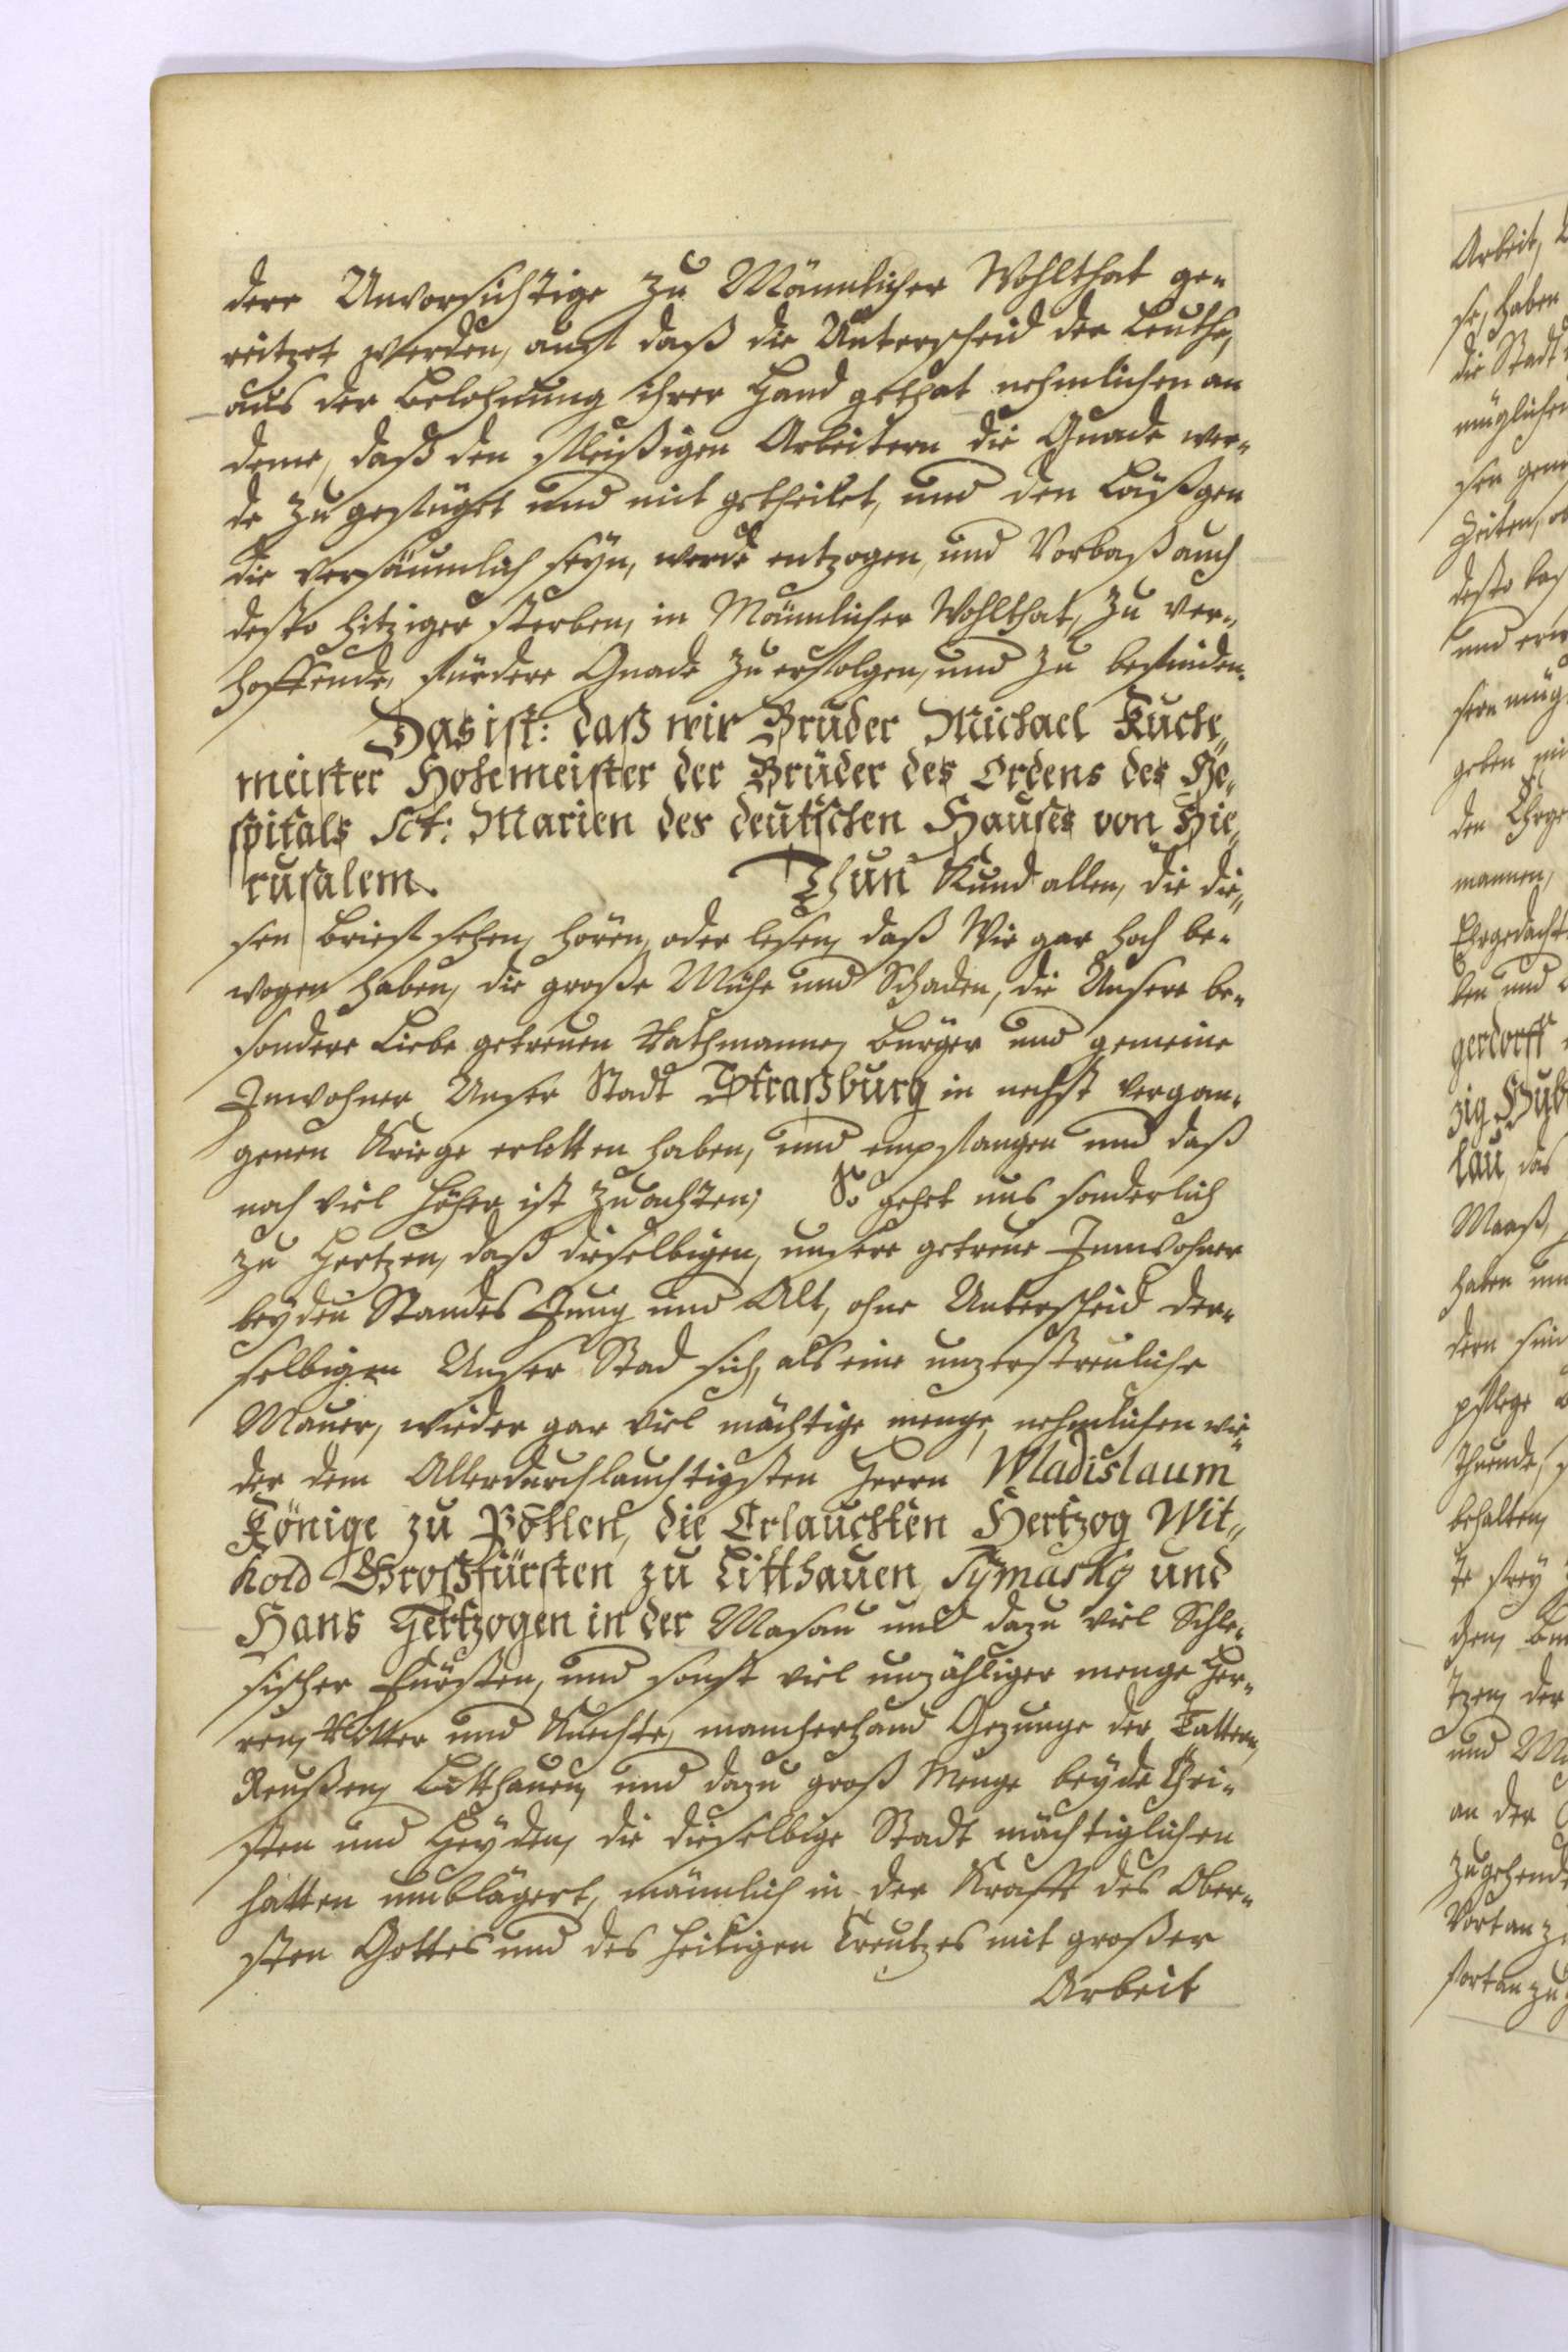 dere Unvorsichtige zu Männlicher Wohlthat ge-
reitzet werden, auch daß die Unterscheid der Leuthe,
aus der Belohnung ihrer Hand gethat nehmlichen an
deme, daß den fleißigen Arbeitern die Gnade wer-
de zugefüget und mit getheilet, und den Läßgen
die versäumlich seyn, werde entzogen, und Vorbaß auch
desto hitziger sterben, in Männlicher Wohlthat, zu ver-
hoffende, fürdere Gnade zu erfolgen, und zu befinden.
Das ist: daß wir Bruder Michael Kuche„
meister Hohemeister der Brüder des Ordens des Ho„
spitals Sct: Marien des deutschen Hauses von Hie„
rusalem. Thun Kund allen, die die„
sen Brieff sehen, hören, oder lesen, daß Wir gar hoch be-
wogen haben, die große Mühe und Schaden, die Unsere be-
sondere Liebe getreuen Rathmanne, Bürger und gemeine
Inwohner Unser Stadt Straßburg in nechst vergan-
genen Kriege erlitten haben, und empfangen und daß
noch viel höher ist zu achten; So gehet uns sonderlich
zu Hertzen, daß dieselbigen, unsere getreue Innwohner
beyden Standes Jung und Alt, ohne Unterscheid der-
selbigen Unser Stad sich, als eine unzerstreuliche
Mauer, wieder gar viel mächtige menge, nehmlichen wie-
der dem Allerdurchlauchtigsten Herrn Wladislaum
Könige zu Pohlen, die Erlauchten Hertzog Wit„
hold Großfürsten zu Litthauen, Symasky und
Hans Hertzogen in der Masau und dazu viel Schle-
sischer Fürsten, und sonst viel unzähliger menge Her-
ren, Ritter und Knechte, mancherhand Gezunge der Tattern,
Reußen, Litthauen, und dazu groß Menge beyde Chri-
sten und Heyden, die dieselbige Stadt mächtiglichen
hatten umblägert, männlich in der Krafft des Ober-
sten Gottes und des heiligen Creutzes mit großer
Arbeit
Arbeit,
se, haben
die Stadt
müglichen
Zeiten,
desto
und
geben
den
mannen,
ben und
gerdorff
zig Hub
lau, das
Maaß,
haben
dern
pflege
thuende,
behalten,
te frey
tzen, der
und
an der
zugehende
Vortan
fortan zu